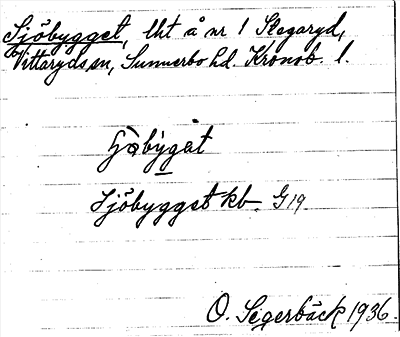 Sjöbygget, lht å nr 1 Slegaryd,
Vittaryds sn, Sunnerbo hd. Kronob. l.
Sjöbygget kb. G 19
O. Segerbäck 1936.